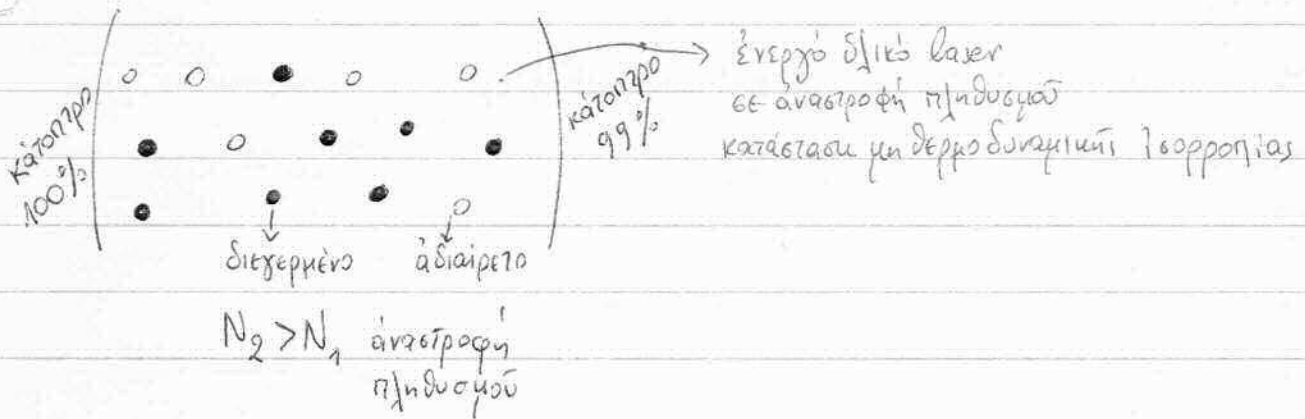 κάτοπτρο
100%
κάτοπτρο
99%
ἐνεργό ὑλικό laser
σε ἀναστροφή πληθυσμοῦ
κατάσταση μη θερμοδυναμικής ἰσορροπίας
διεγερμένο
ἀδιαίρετο
N₂ > N₁ ἀναστροφή
πληθυσμοῦ